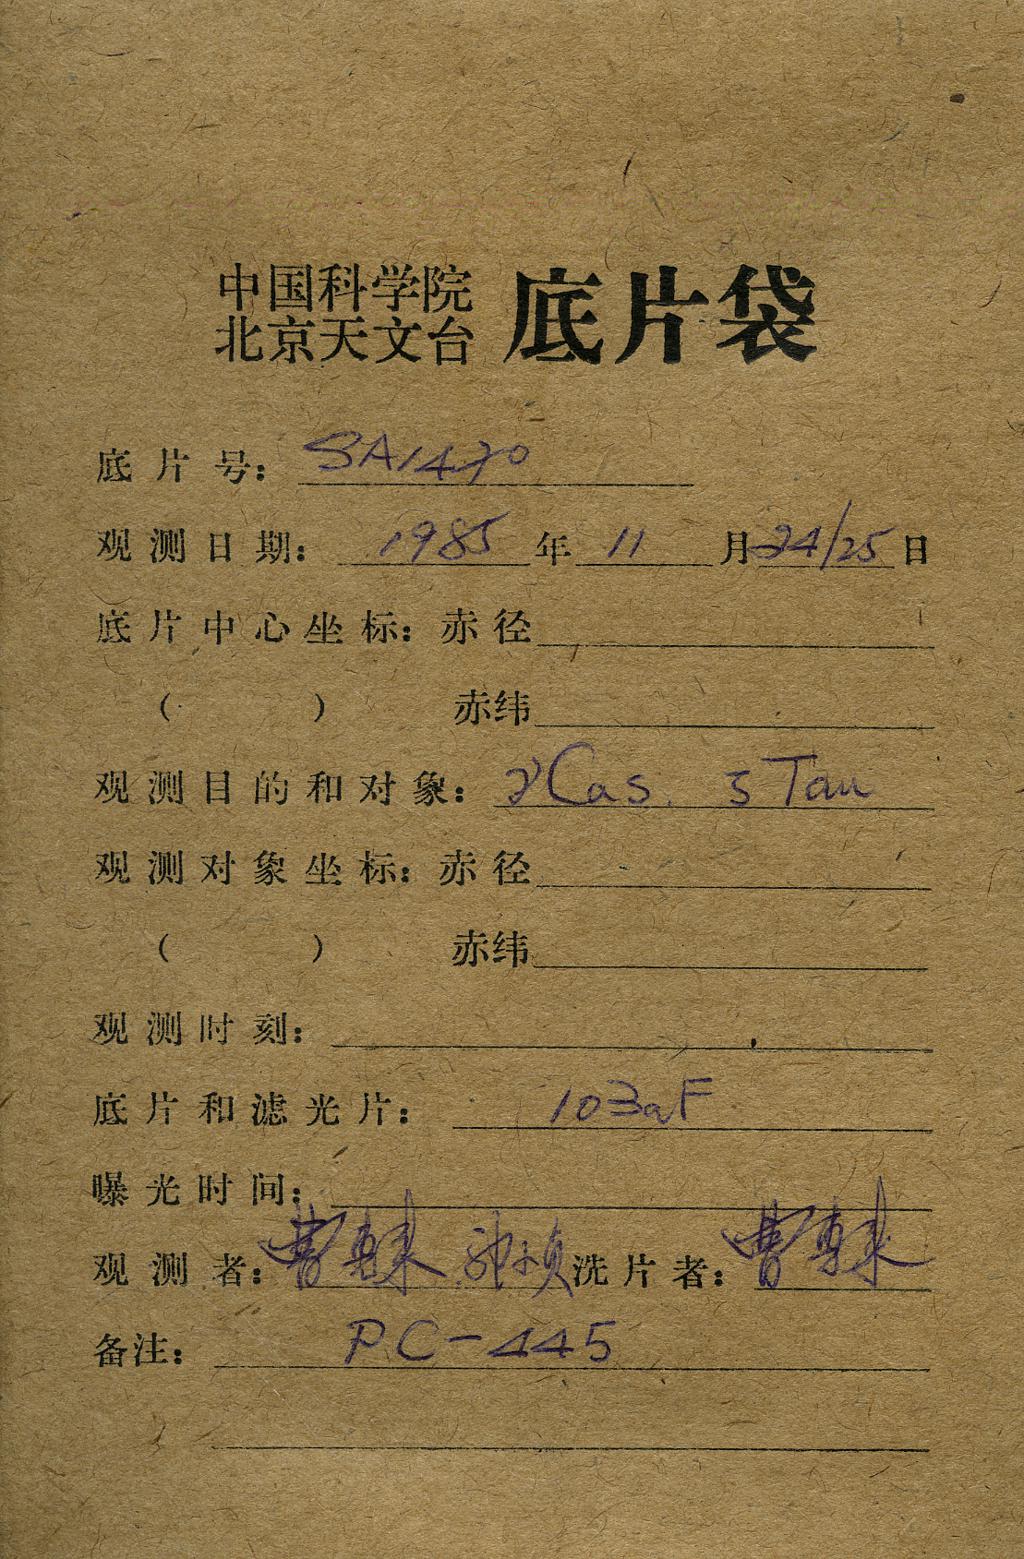 中国科学院
北京天文台 底片袋
底片号: SA1470
观测日期: 1985年11月24/25日
底片中心坐标: 赤径
( ) 赤纬
观测目的和对象: γ Cas. ζ Tau
观测对象坐标: 赤径
( ) 赤纬
观测时刻:
底片和滤光片: 103aF
曝光时间:
观测者: 曹 洗片者: 曹
备注: PC-445